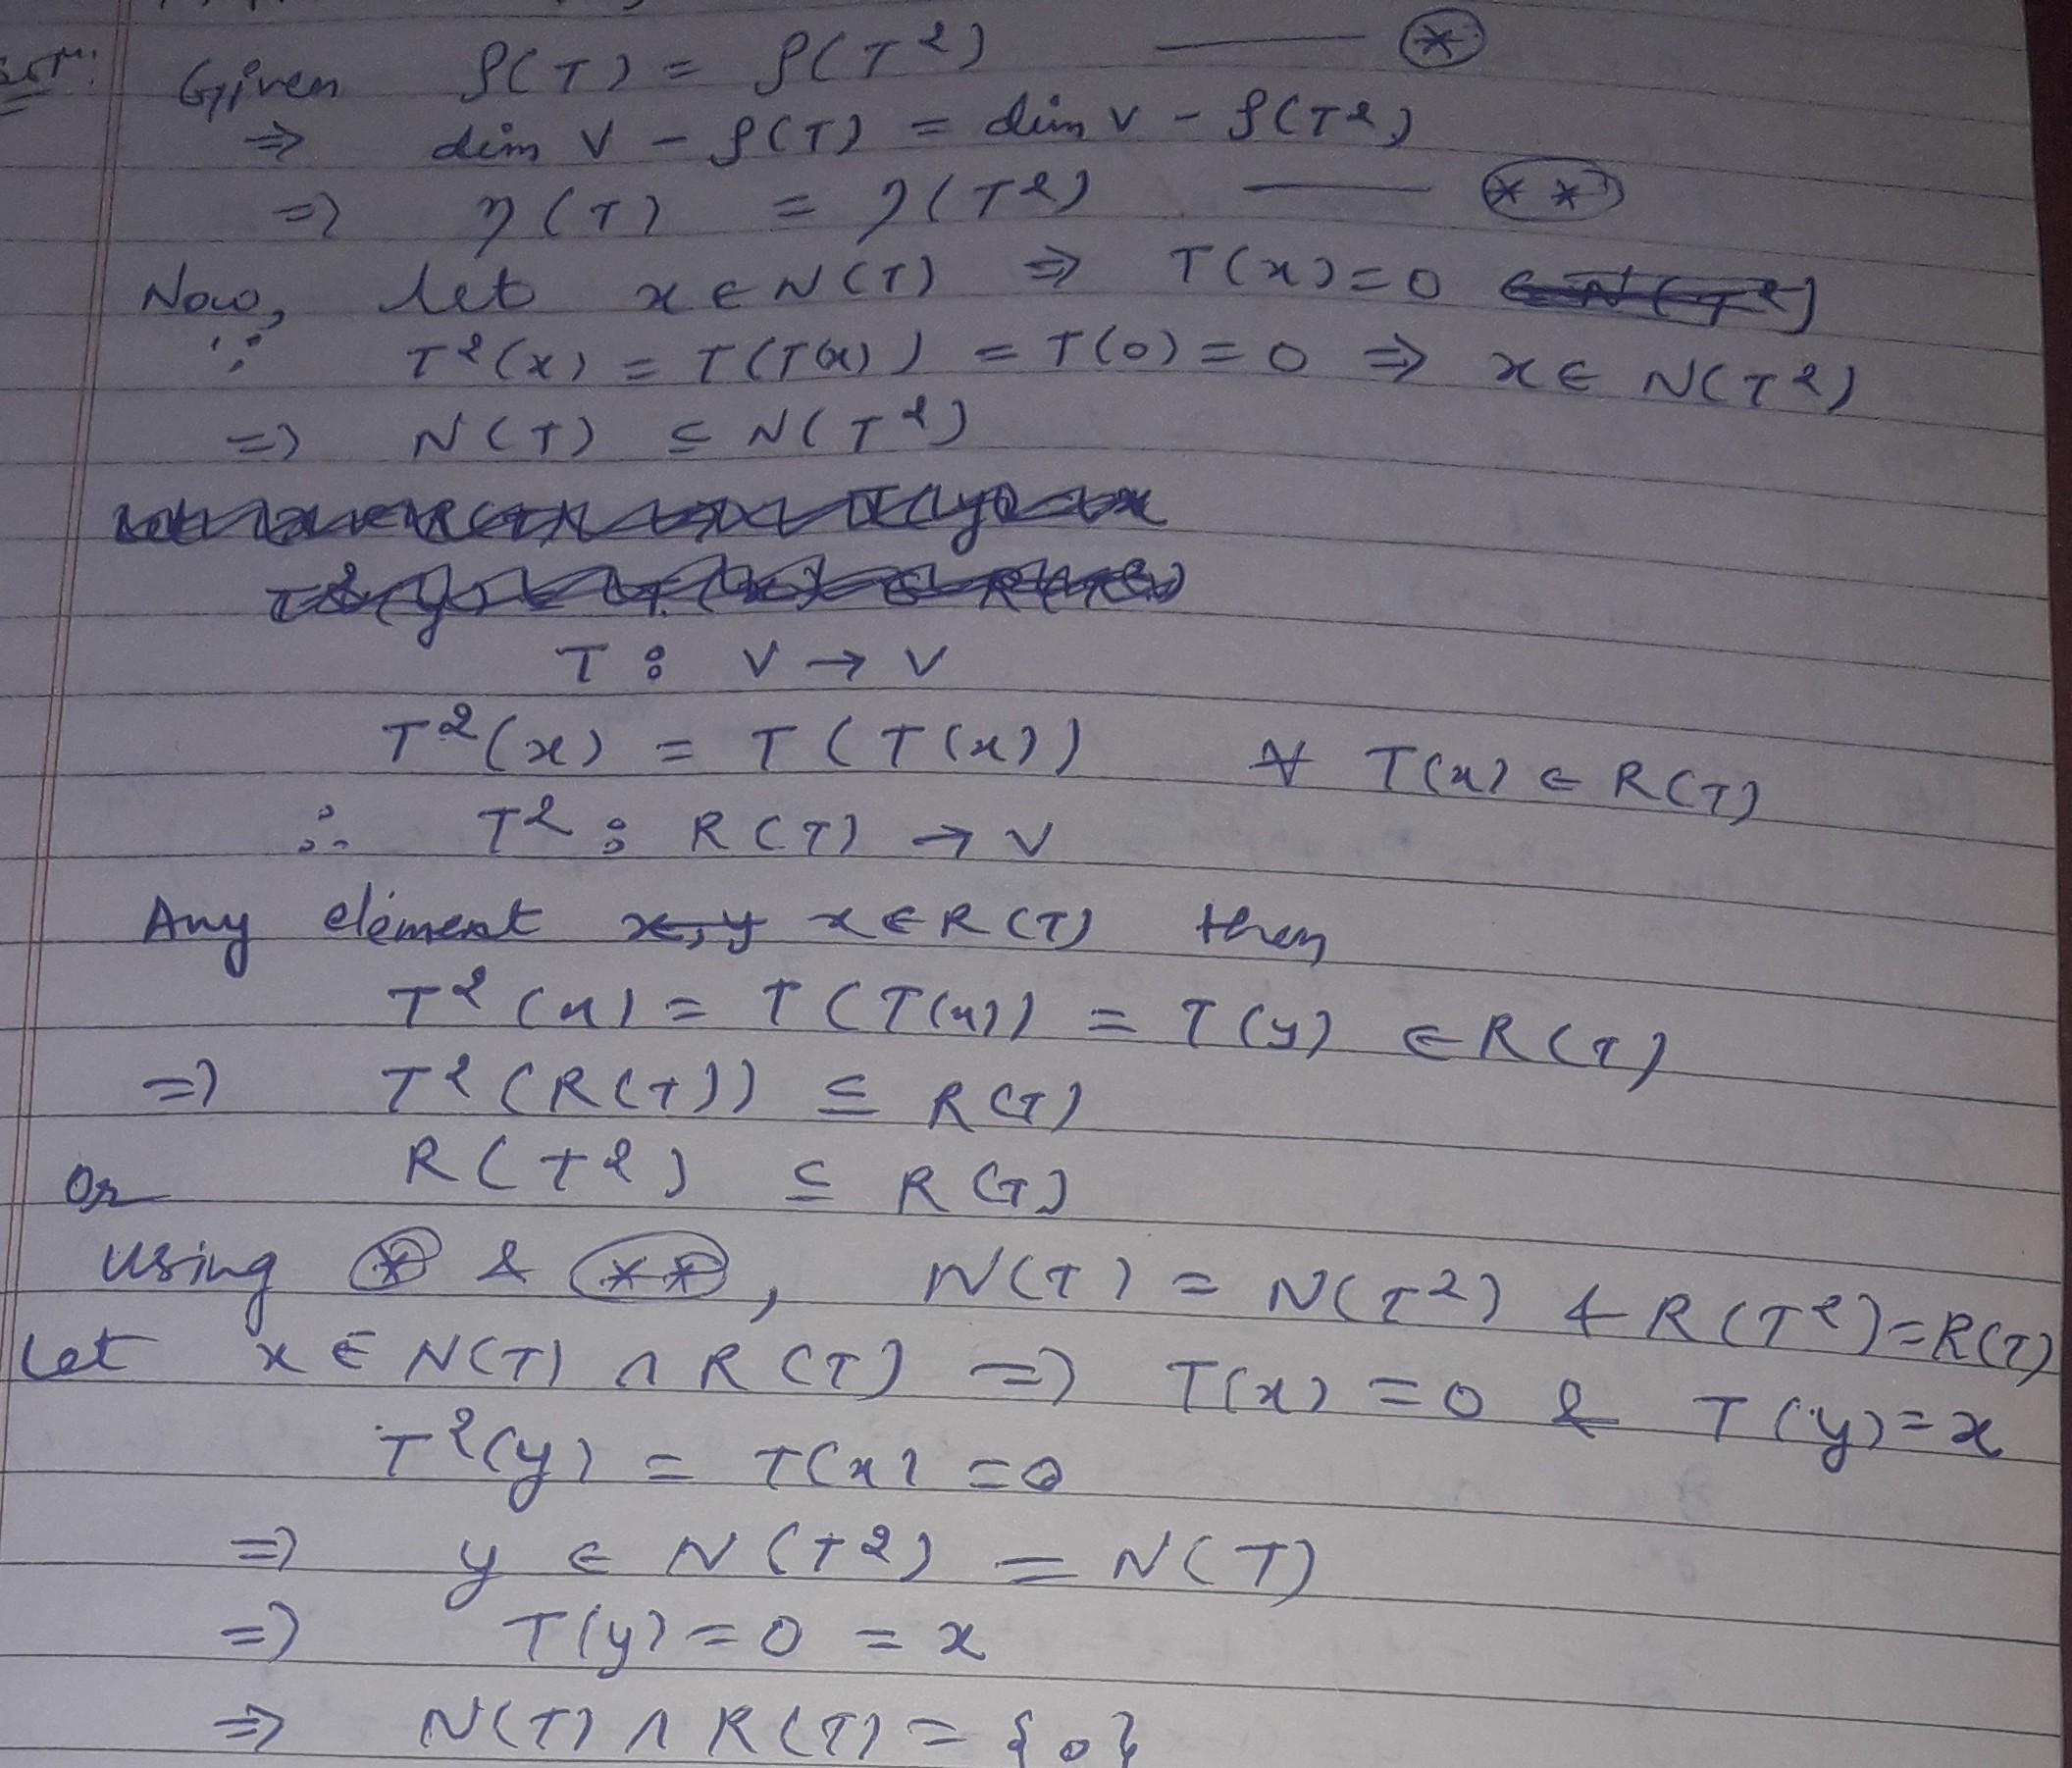 Given ρ(T) = ρ(T²) —— (*)
⇒ dim V - ρ(T) = dim V - ρ(T²)
⇒ η(T) = η(T²) —— (**)
Now, let x ∈ N(T) ⇒ T(x)=0
∵ T²(x) = T(T(x)) = T(0) = 0 ⇒ x ∈ N(T²)
⇒ N(T) ⊆ N(T²)
T : V → V
T²(x) = T(T(x)) ∀ T(x) ∈ R(T)
∴ T² : R(T) → V
Any element x, y x ∈ R(T) then
T²(x) = T(T(x)) = T(y) ∈ R(T)
⇒ T²(R(T)) ⊆ R(T)
Or R(T²) ⊆ R(T)
Using (*) & (**), N(T) = N(T²) & R(T²)=R(T)
Let x ∈ N(T) ∩ R(T) ⇒ T(x) = 0 & T(y)=x
T²(y) = T(x) = 0
⇒ y ∈ N(T²) = N(T)
⇒ T(y) = 0 = x
⇒ N(T) ∩ R(T) = {0}